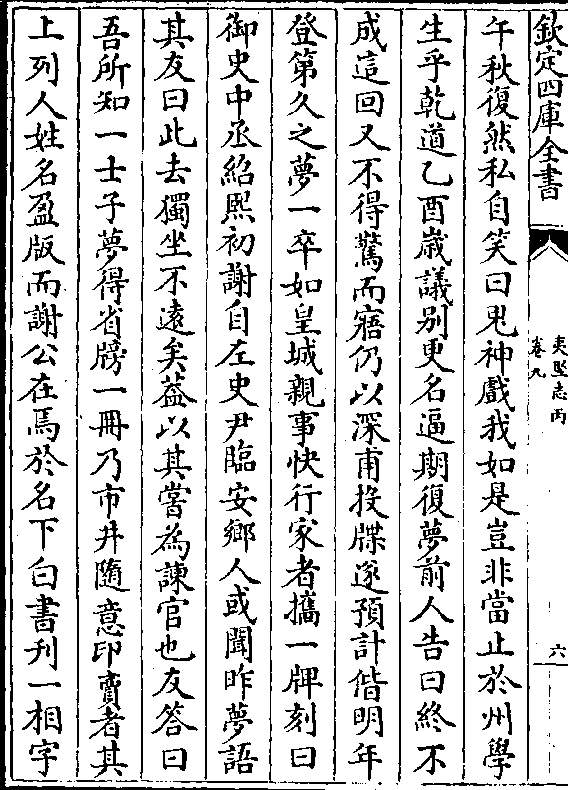 欽定四庫全書
夷堅志丙
卷九
六
午秋復然私自笑曰鬼神戲我如是豈非當止於州學
生乎乾道乙酉嵗議别更名逼期復夢前人告曰終不
成這回又不得驚而寤仍以深甫投牒遂預計偕明年
登第久之夢一卒如皇城親事快行家者攜一牌刻曰
御史中丞紹熙初謝自左史尹臨安鄉人或聞昨夢語
其友曰此去獨坐不逺矣葢以其嘗為諫官也友答曰
吾所知一士子夢得省牓一冊乃市井隨意印賣者其
上列人姓名盈版而謝公在焉於名下白書刋一相字